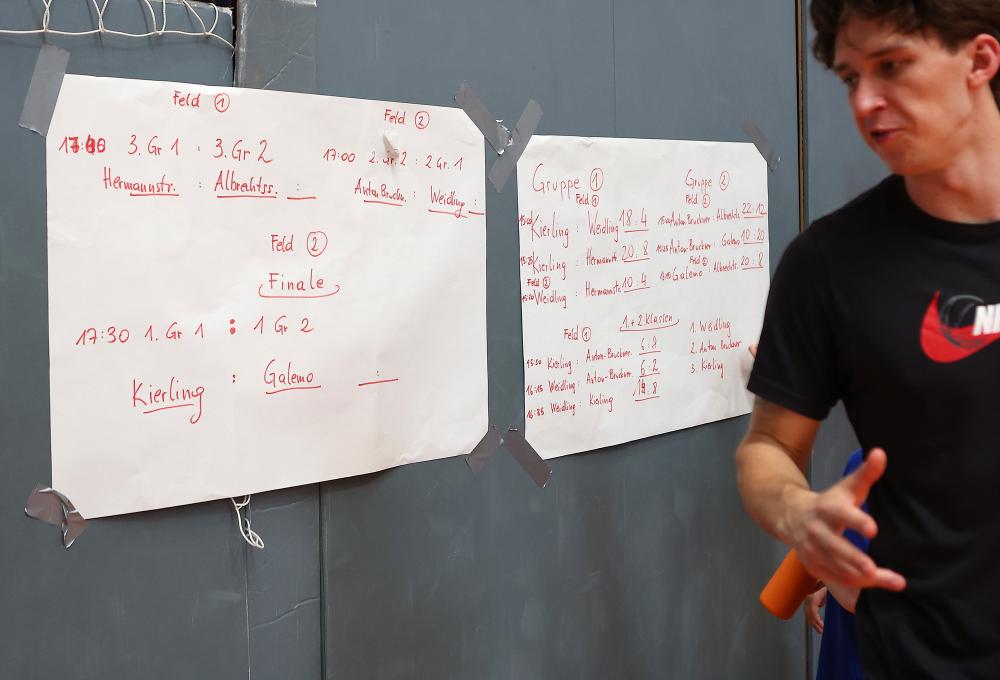 Feld 1
Feld 2
3. Gr 1 : 3. Gr 2
17:00 2. Gr. 2 : 2 Gr. 1
Hermannstr. : Albrechtss. :
Anton Bruckn. : Weidling :
Feld 2
Finale
17:30 1. Gr 1 : 1 Gr 2
Kierling : Galemo :
Gruppe 1
Feld 1
Kierling : Weidling 18:4
Kierling : Hermannstr. 20:8
Feld 2
Weidling : Hermannstr. 10:4
Gruppe 2
Feld 2
Anton-Bruckner : Albrechts. 22:12
Anton-Bruckner : Galemo 10:20
Feld
Galemo : Albrechts. 20:8
1.+2 Klassen
Feld 1
Kierling : Anton-Bruckner. 6:8
16:15 Weidling : Anton-Bruckner. 6:2
16:35 Weidling : Kierling :8
1. Weidling
2. Anton Bruckner
3. Kierling
NI